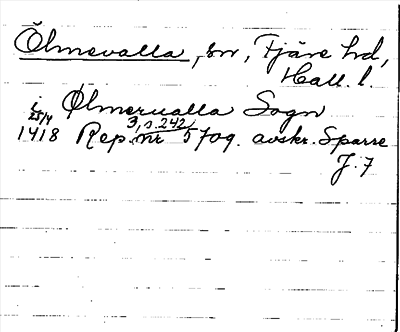 Ölmevalla, sn, Fjäre hd,
Hall. l.
i Ølmerualla Sogn
25/4 3, s. 242
1418 Rep. nr 5709. avskr. Sparre
J. 7